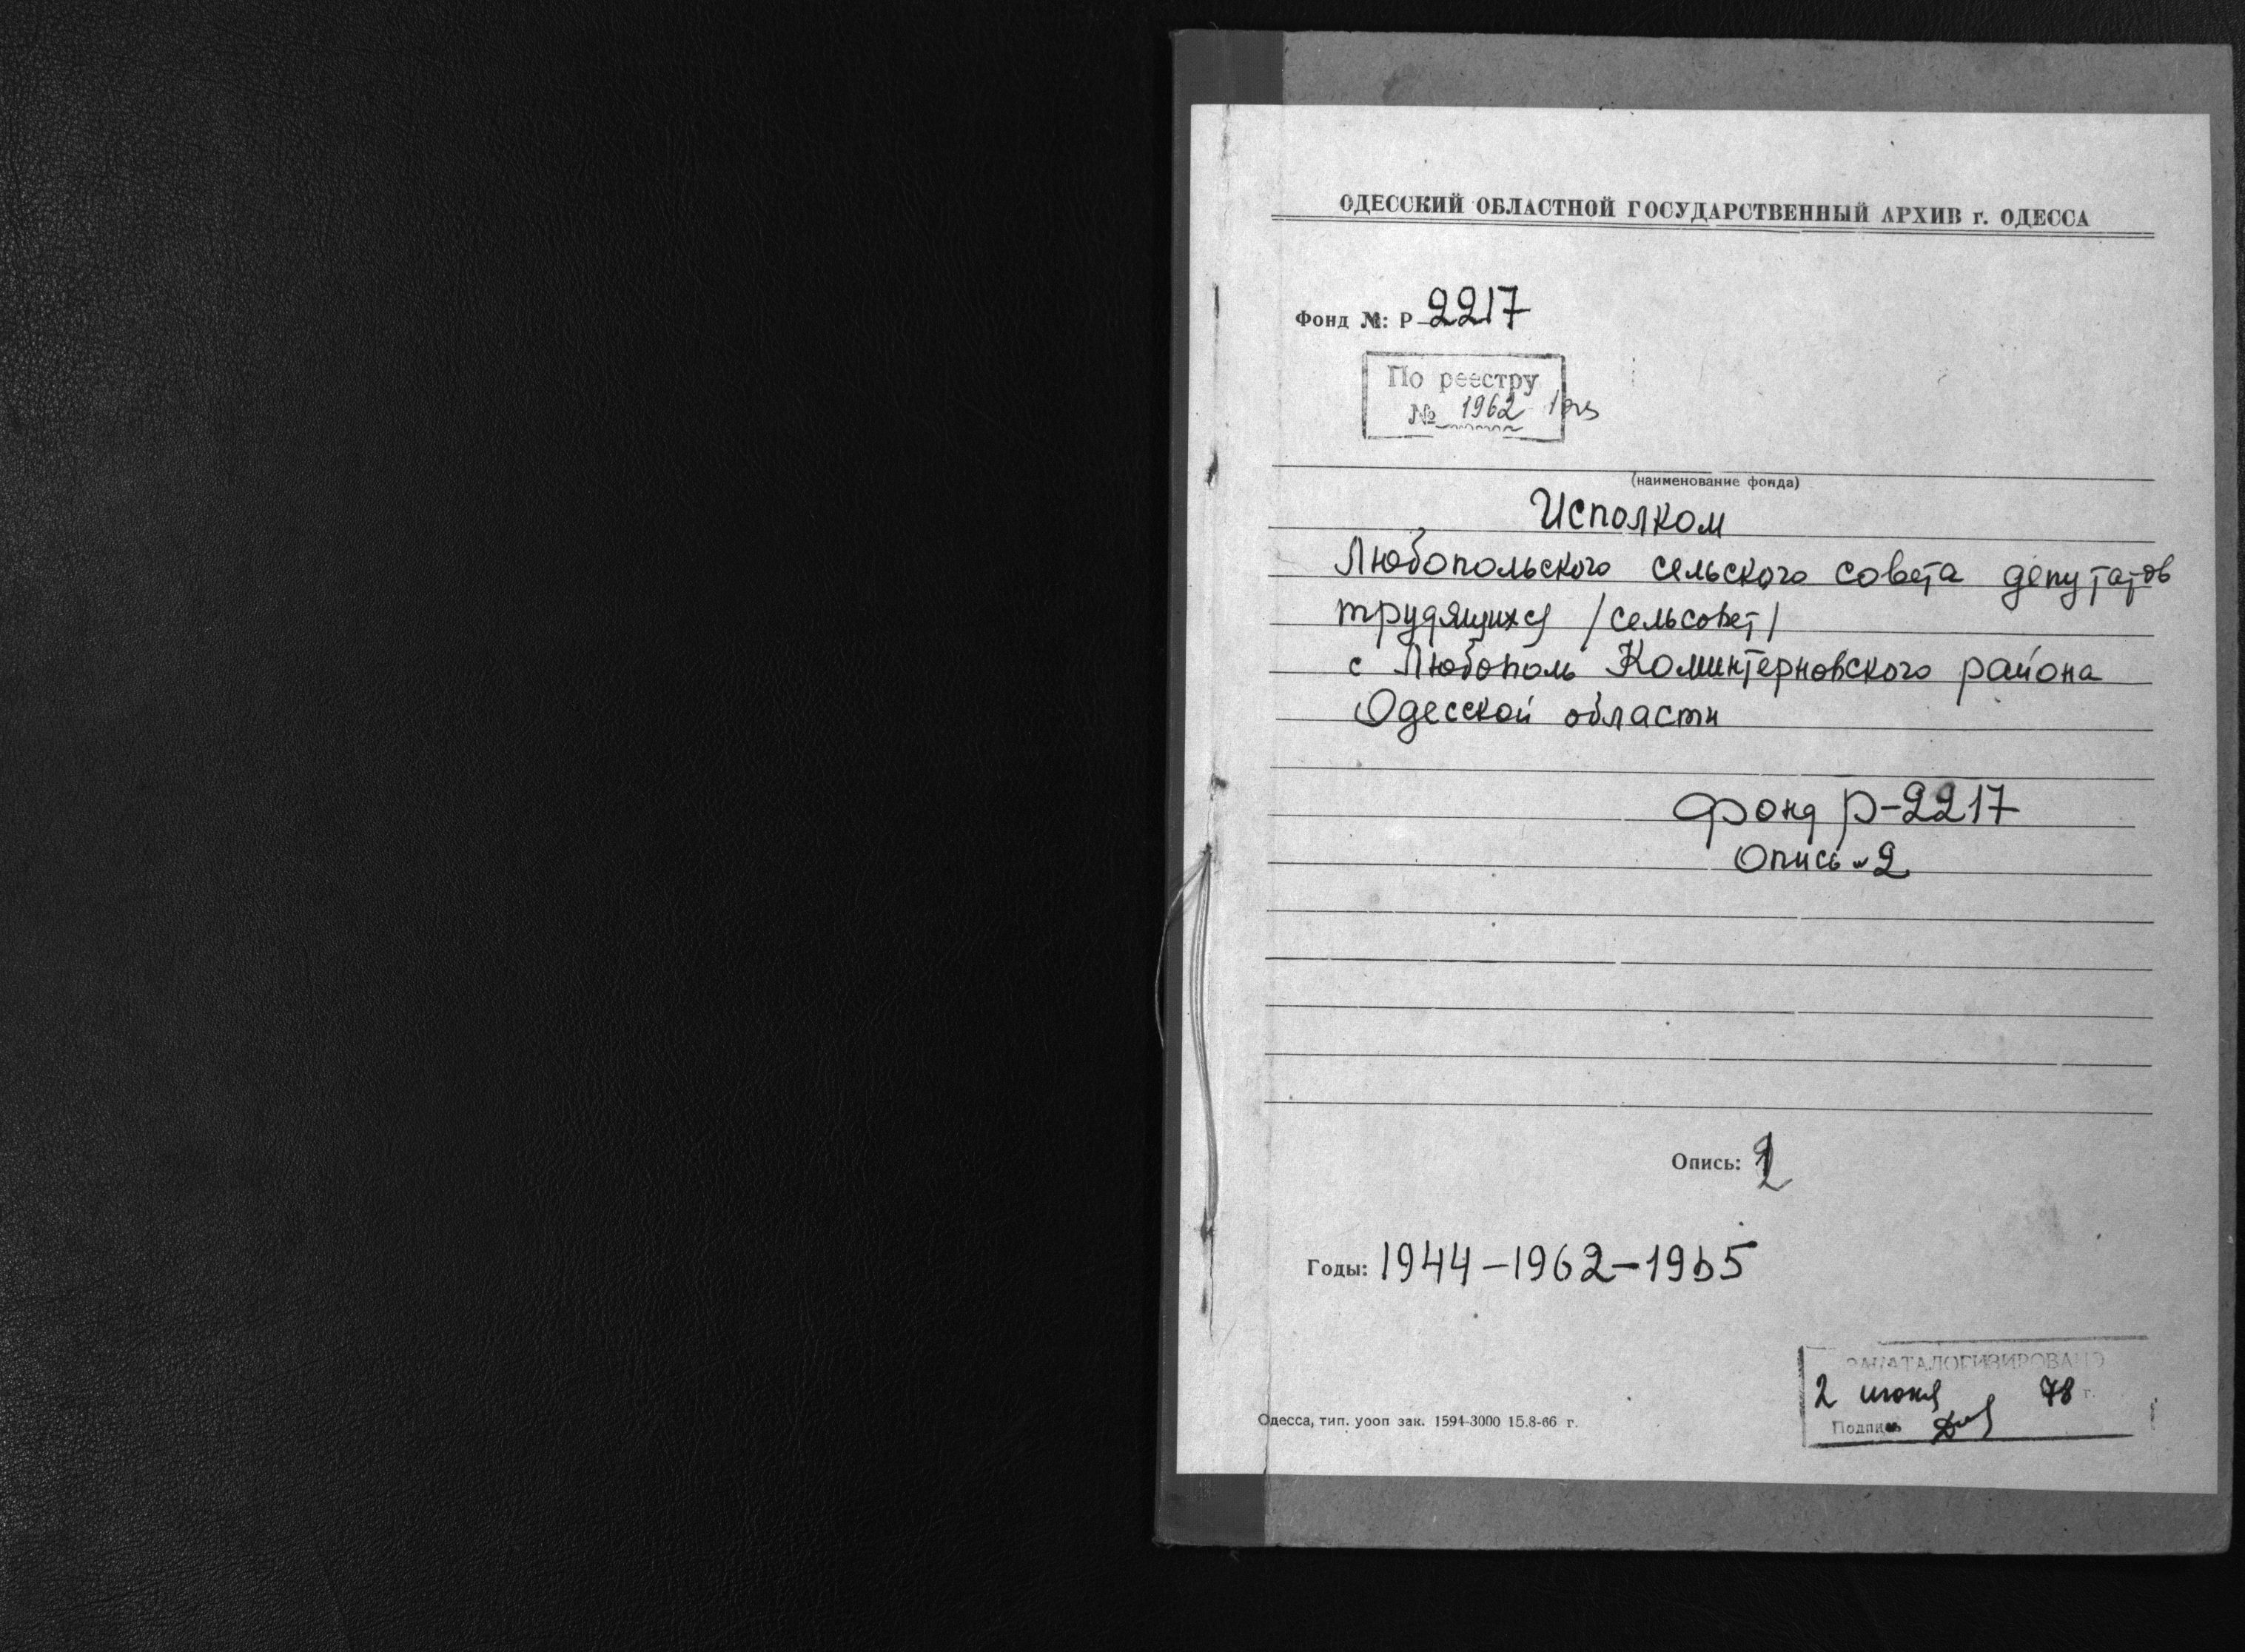 ОДЕССКИЙ ОБЛАСТНОЙ ГОСУДАРСТВЕННЫЙ АРХИВ г. ОДЕССА
Фонд №: Р-2217
По реестру
№ 1962
(наименование фонда)
Исполком
Любопольского сельского совета депутатов
трудящихся /сельсовет/
с Любополь Коминтерновского района
Одесской области
Фонд Р-2217
Опись №2
Опись: 2
Годы: 1944-1962-1965
ЗАКАТАЛОГИЗИРОВАНО
2 июня 78 г.
Подпись
Одесса, тип. уооп зак. 1594-3000 15.8-66 г.